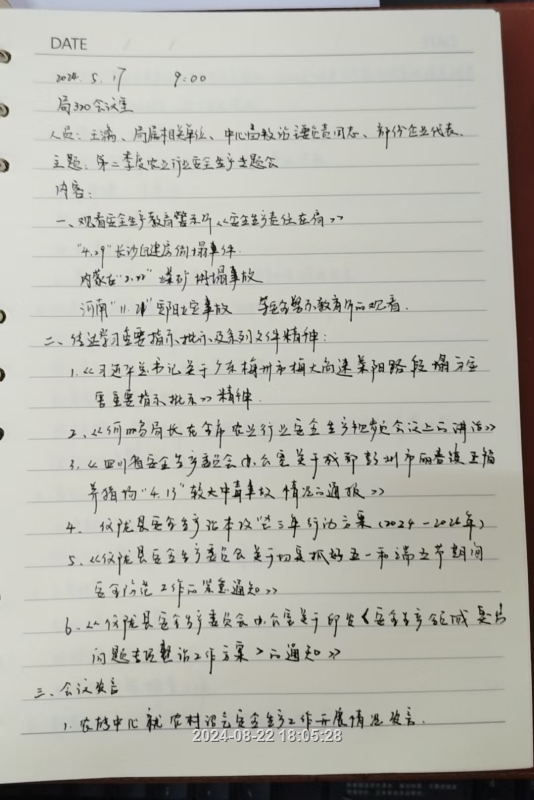 DATE / /
2024. 5. 17 9:00
局320会议室
人员:王满、局属相关单位、中心、负责同志、部份企业代表.
主题:第二季度农业行业安全生产专题会
内容:
一、观看安全生产教育警示片《安全生产责任在肩》
"4.29"长沙自建房倒塌事件.
内蒙古"2.22"煤矿坍塌事故
河南"11.21"安阳火灾事故 等安全警示教育片的观看.
二、传达学习重要指示、批示及系列文件精神:
1.《习近平总书记关于广东梅州市梅大高速茶阳路段塌方灾
害重要指示批示》精神.
2、《何四局长在全市农业行业安全生产会议上的讲话》
3、《四川省安全生产委员会办公室关于成都彭州市丽春镇
养殖场"4.13"较大中毒事故情况的通报》
4. 仪陇县安全生产治本攻坚三年行动方案(2024-2026年)
5、《仪陇县安全生产委员会关于切实抓好五一和端午节期间
安全防范工作的紧急通知》
6.《仪陇县安全生产委员会办公室关于印发〈安全生产领域突出
问题专项整治工作方案〉的通知》
三、会议发言
1. 农技中心就农村沼气安全生产工作开展情况发言.
2024-08-22 18:05:28